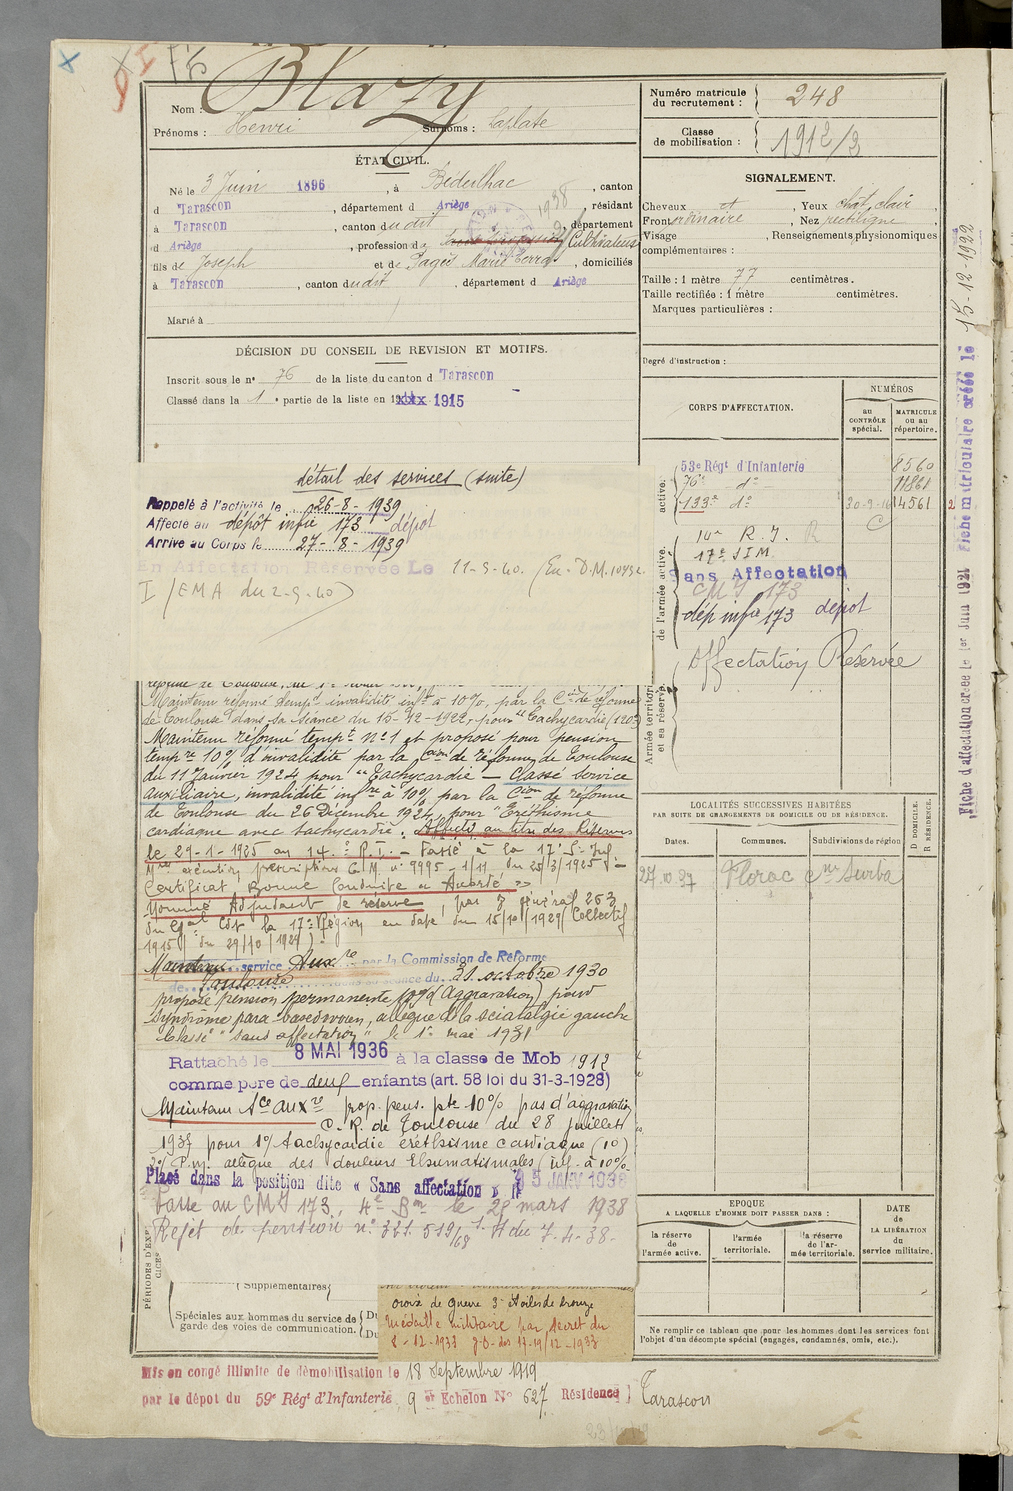 Blazy
Nom :
Prénoms : Henri Surnoms : Laplate
Numéro matricule du recrutement : 248
Classe de mobilisation : 1912/3
ÉTAT CIVIL.
Né le 3 Juin 1896, à Bédeilhac, canton
d Tarascon, département d Ariège, résidant
à Tarascon, canton dudit, département
d Ariège, profession de Cultivateur
fils de Joseph et de Pagès Marie, domiciliés
à Tarascon, canton dudit, département d Ariège
Marié à
SIGNALEMENT.
Cheveux chat, Yeux chat clair,
Front ordinaire, Nez rectiligne,
Visage , Renseignements physionomiques
complémentaires :
Taille : 1 mètre 77 centimètres.
Taille rectifiée : 1 mètre centimètres.
Marques particulières :
Degré d'instruction :
DÉCISION DU CONSEIL DE REVISION ET MOTIFS.
Inscrit sous le n° 76 de la liste du canton d Tarascon
Classé dans la 1e partie de la liste en 1915
CORPS D'AFFECTATION.
NUMÉROS
au CONTRÔLE spécial.
MATRICULE ou au répertoire.
53e Régt d'Infanterie 8560
76e do 11861
133e do 30-9-16 14561
14e R.I. R
17e S.I.M.
Sans Affectation
CMI 173
dép infie 173 dépot
Affectation Réservée
active.
de l'armée active.
Armée territoriale et sa réserve.
détail des services (suite)
Rappelé à l'activité le 26-8-1939
Affecté au dépôt infie 173 dépot
Arrivé au Corps le 27-8-1939
En Affectation Réservée Le 11-9-40. (En. D.M. 10492
I/EMA du 2-9-40)
Maintenu réformé tempre invalidité infre à 10%, par la Con de réforme
de Toulouse dans sa séance du 15-12-1922, pour "Tachycardie (120)
Maintenu réformé tempre n°1 et proposé pour pension
tempre 10% d'invalidité par la Cion de réforme de Toulouse
du 11 Janvier 1924 pour "Tachycardie — Classé service
auxiliaire, invalidité infre à 10% par la Cion de réforme
de Toulouse du 26 Décembre 1924 pour "Eréthisme
cardiaque avec tachycardie. Affecté au titre des Réserves
le 29-1-1925 au 14e R.I. — Passé à la 17e S-Inf
Mres exécution prescriptions C.M. n° 9995-1/11 du 25/3/1925
Certificat Bonne Conduite "Accordé"
Nommé Adjudant de réserve, par O général 263
du Gal Cdt la 17e Région en date du 15/10/1929 (Collectif
1915 du 29/10/1929)
Maintenu service Auxre par la Commission de Réforme
de Toulouse dans sa séance du 31 octobre 1930
propose pension permanente 10% d'Aggravation pour
Syndrome para-basedowien, allègue de la sciatalgie gauche
Classé "sans affectation" le 1er mai 1931
Rattaché le 8 MAI 1936 à la classe de Mob 1912
comme père de deux enfants (art. 58 loi du 31-3-1928)
Maintenu Sce auxre prop. pens. pte 10% pas d'aggravation
C. R. de Toulouse du 28 juillet
1937 pour 1°/ tachycardie éréthisme cardiaque (10)
2°/ P.m. allègue des douleurs Rhumatismales (inf. à 10%)
Placé dans la position dite « Sans affectation » le 15 JANV 1938
Passe au CMI 173, 4e Bon le 28 mars 1938
Rejet de pension n° 321.519/68 du 7-4-38-
PÉRIODES D'EXERCICES
Supplémentaires
Spéciales aux hommes du service de garde des voies de communication. Du Du
croix de guerre 3 étoiles de bronze
Médaille militaire par décret du
8-12-1933 J.O. des 17-19/12-1933
LOCALITÉS SUCCESSIVES HABITÉES
PAR SUITE DE CHANGEMENTS DE DOMICILE OU DE RÉSIDENCE.
Dates. Communes. Subdivisions de région
D. DOMICILE. R. RÉSIDENCE.
27.10.37 Florac cne Surba
EPOQUE
A LAQUELLE L'HOMME DOIT PASSER DANS :
la réserve de l'armée active.
l'armée territoriale.
la réserve de l'armée territoriale.
DATE de LA LIBÉRATION du service militaire.
Ne remplir ce tableau que pour les hommes dont les services font l'objet d'un décompte spécial (engagés, condamnés, omis, etc.).
Mis en congé illimité de démobilisation le 18 Septembre 1919
par le dépot du 59e Régt d'Infanterie, 9 er Echelon N° 627 Résidence Tarascon
Fiche d'affectation créée le 1er Juin 1921 Fiche matriculaire créée le 15-12-1922